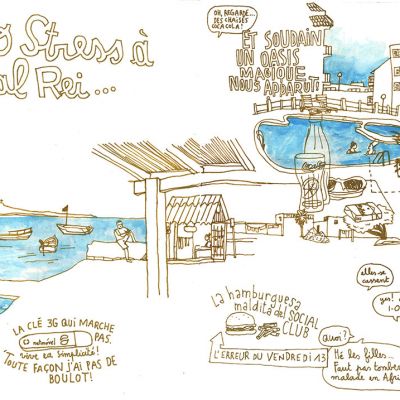 Stress à
al Rei...
OH, REGARDE...
DES CHAISES
COCA COLA!
ET SOUDAIN
UN OASIS
MAGIQUE
NOUS APPARUT!
elles se
cassent
yes!
1-0
La hamburguesa
maldita del SOCIAL
CLUB
L'ERREUR DU VENDREDI 13
quoi?
Hé les filles...
Faut pas tomber
malade en Afri
LA CLÉ 3G QUI MARCHE
PAS.
vive la simplicité!
TOUTE FAÇON J'AI PAS DE
BOULOT!